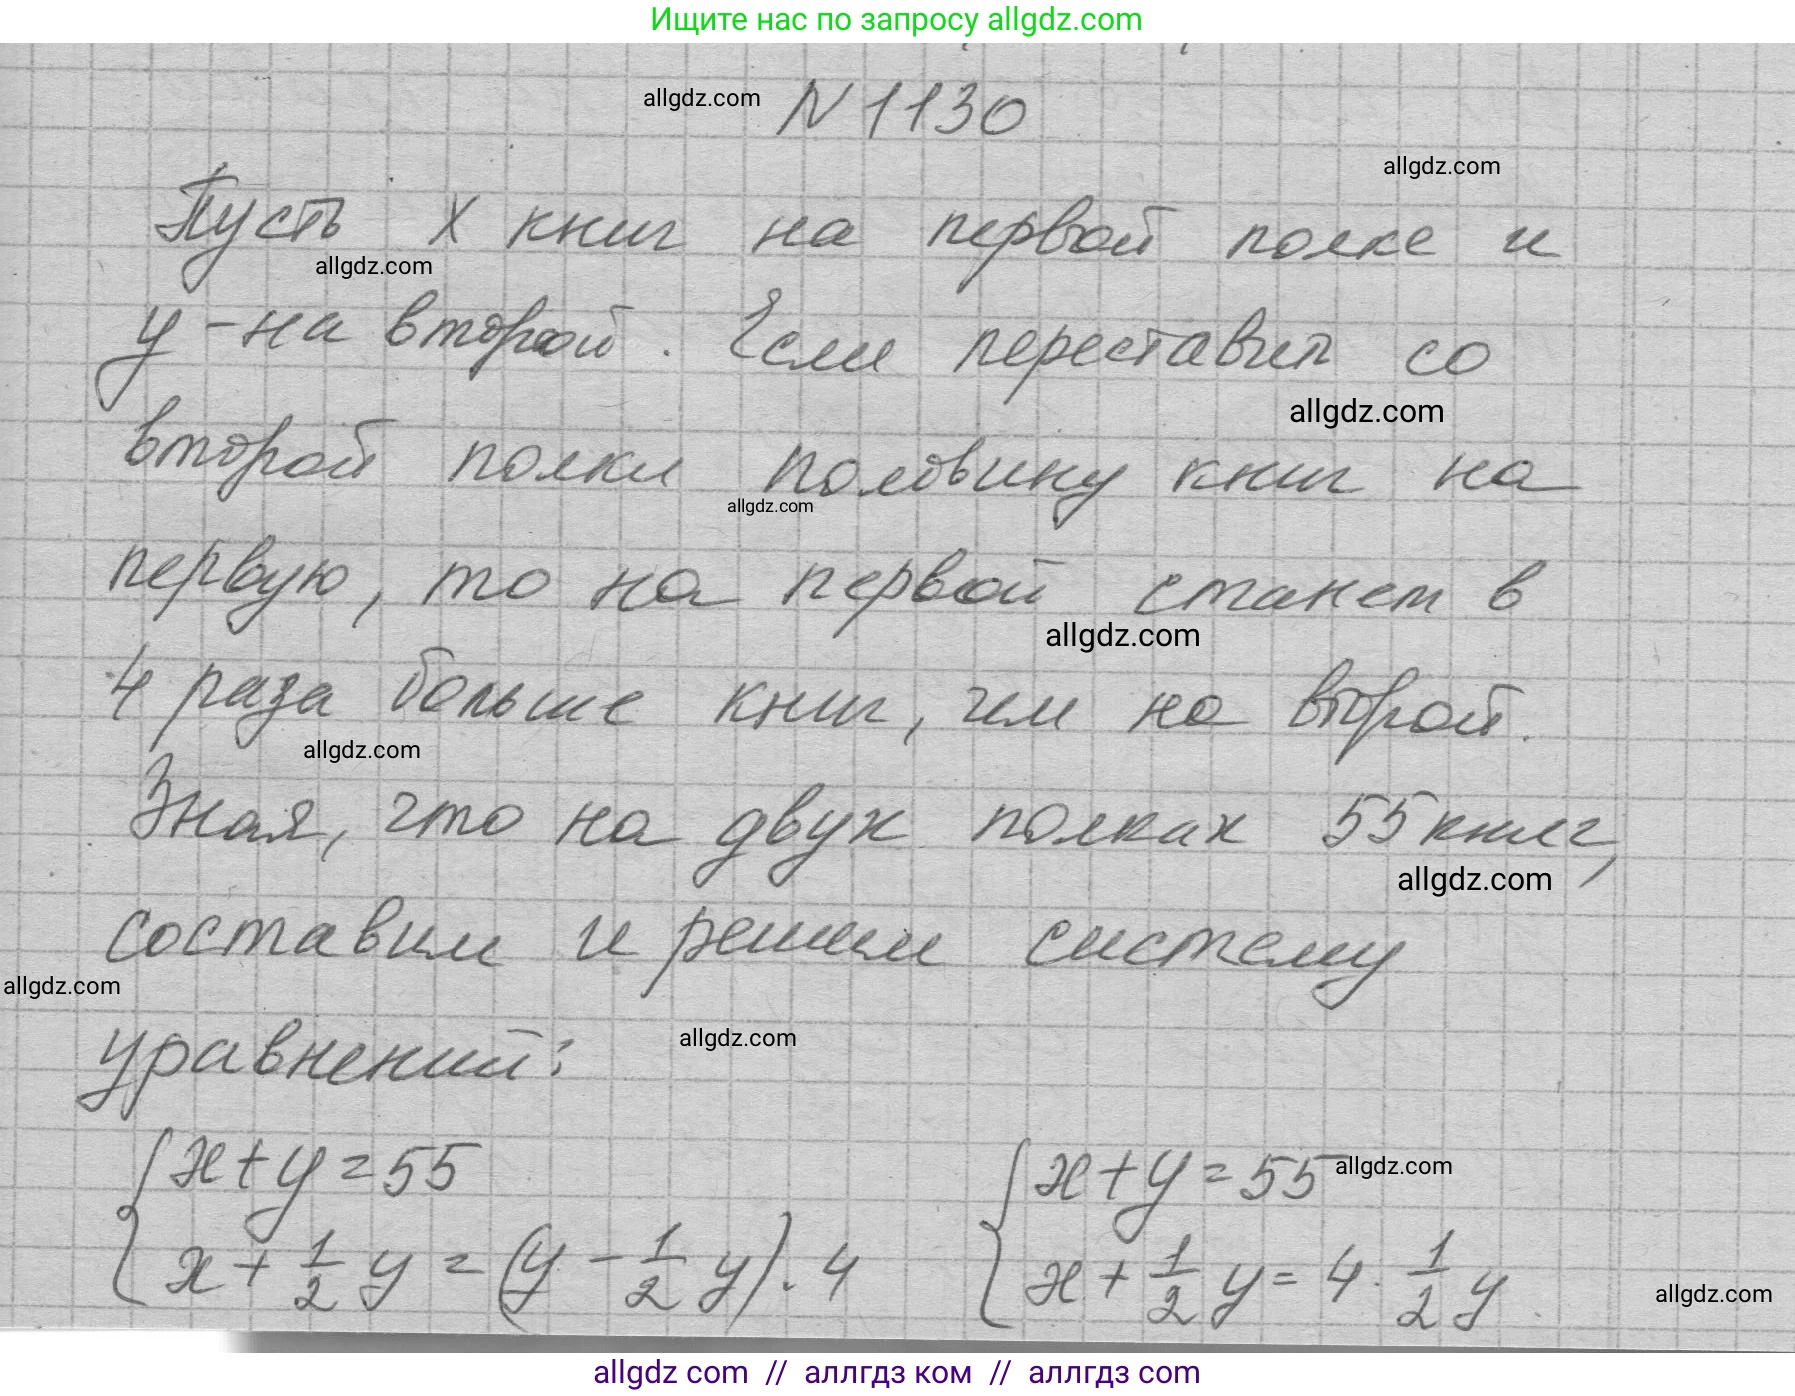 Ищите нас по запросу allgdz.com
allgdz.com N 1130
allgdz.com
Пусть x книг на первой полке и
allgdz.com
y - на второй. Если переставить со
allgdz.com
второй полки половину книг на
allgdz.com
первую, то на первой станет в
allgdz.com
4 раза больше книг, чем на второй.
allgdz.com
Зная, что на двух полках 55 книг,
allgdz.com
составим и решим систему
allgdz.com
уравнений:
allgdz.com
{ x + y = 55 { x + y = 55 allgdz.com
x + 1/2 y = (y - 1/2 y) · 4 x + 1/2 y = 4 · 1/2 y
allgdz.com
allgdz com // аллгдз ком // аллгдз com